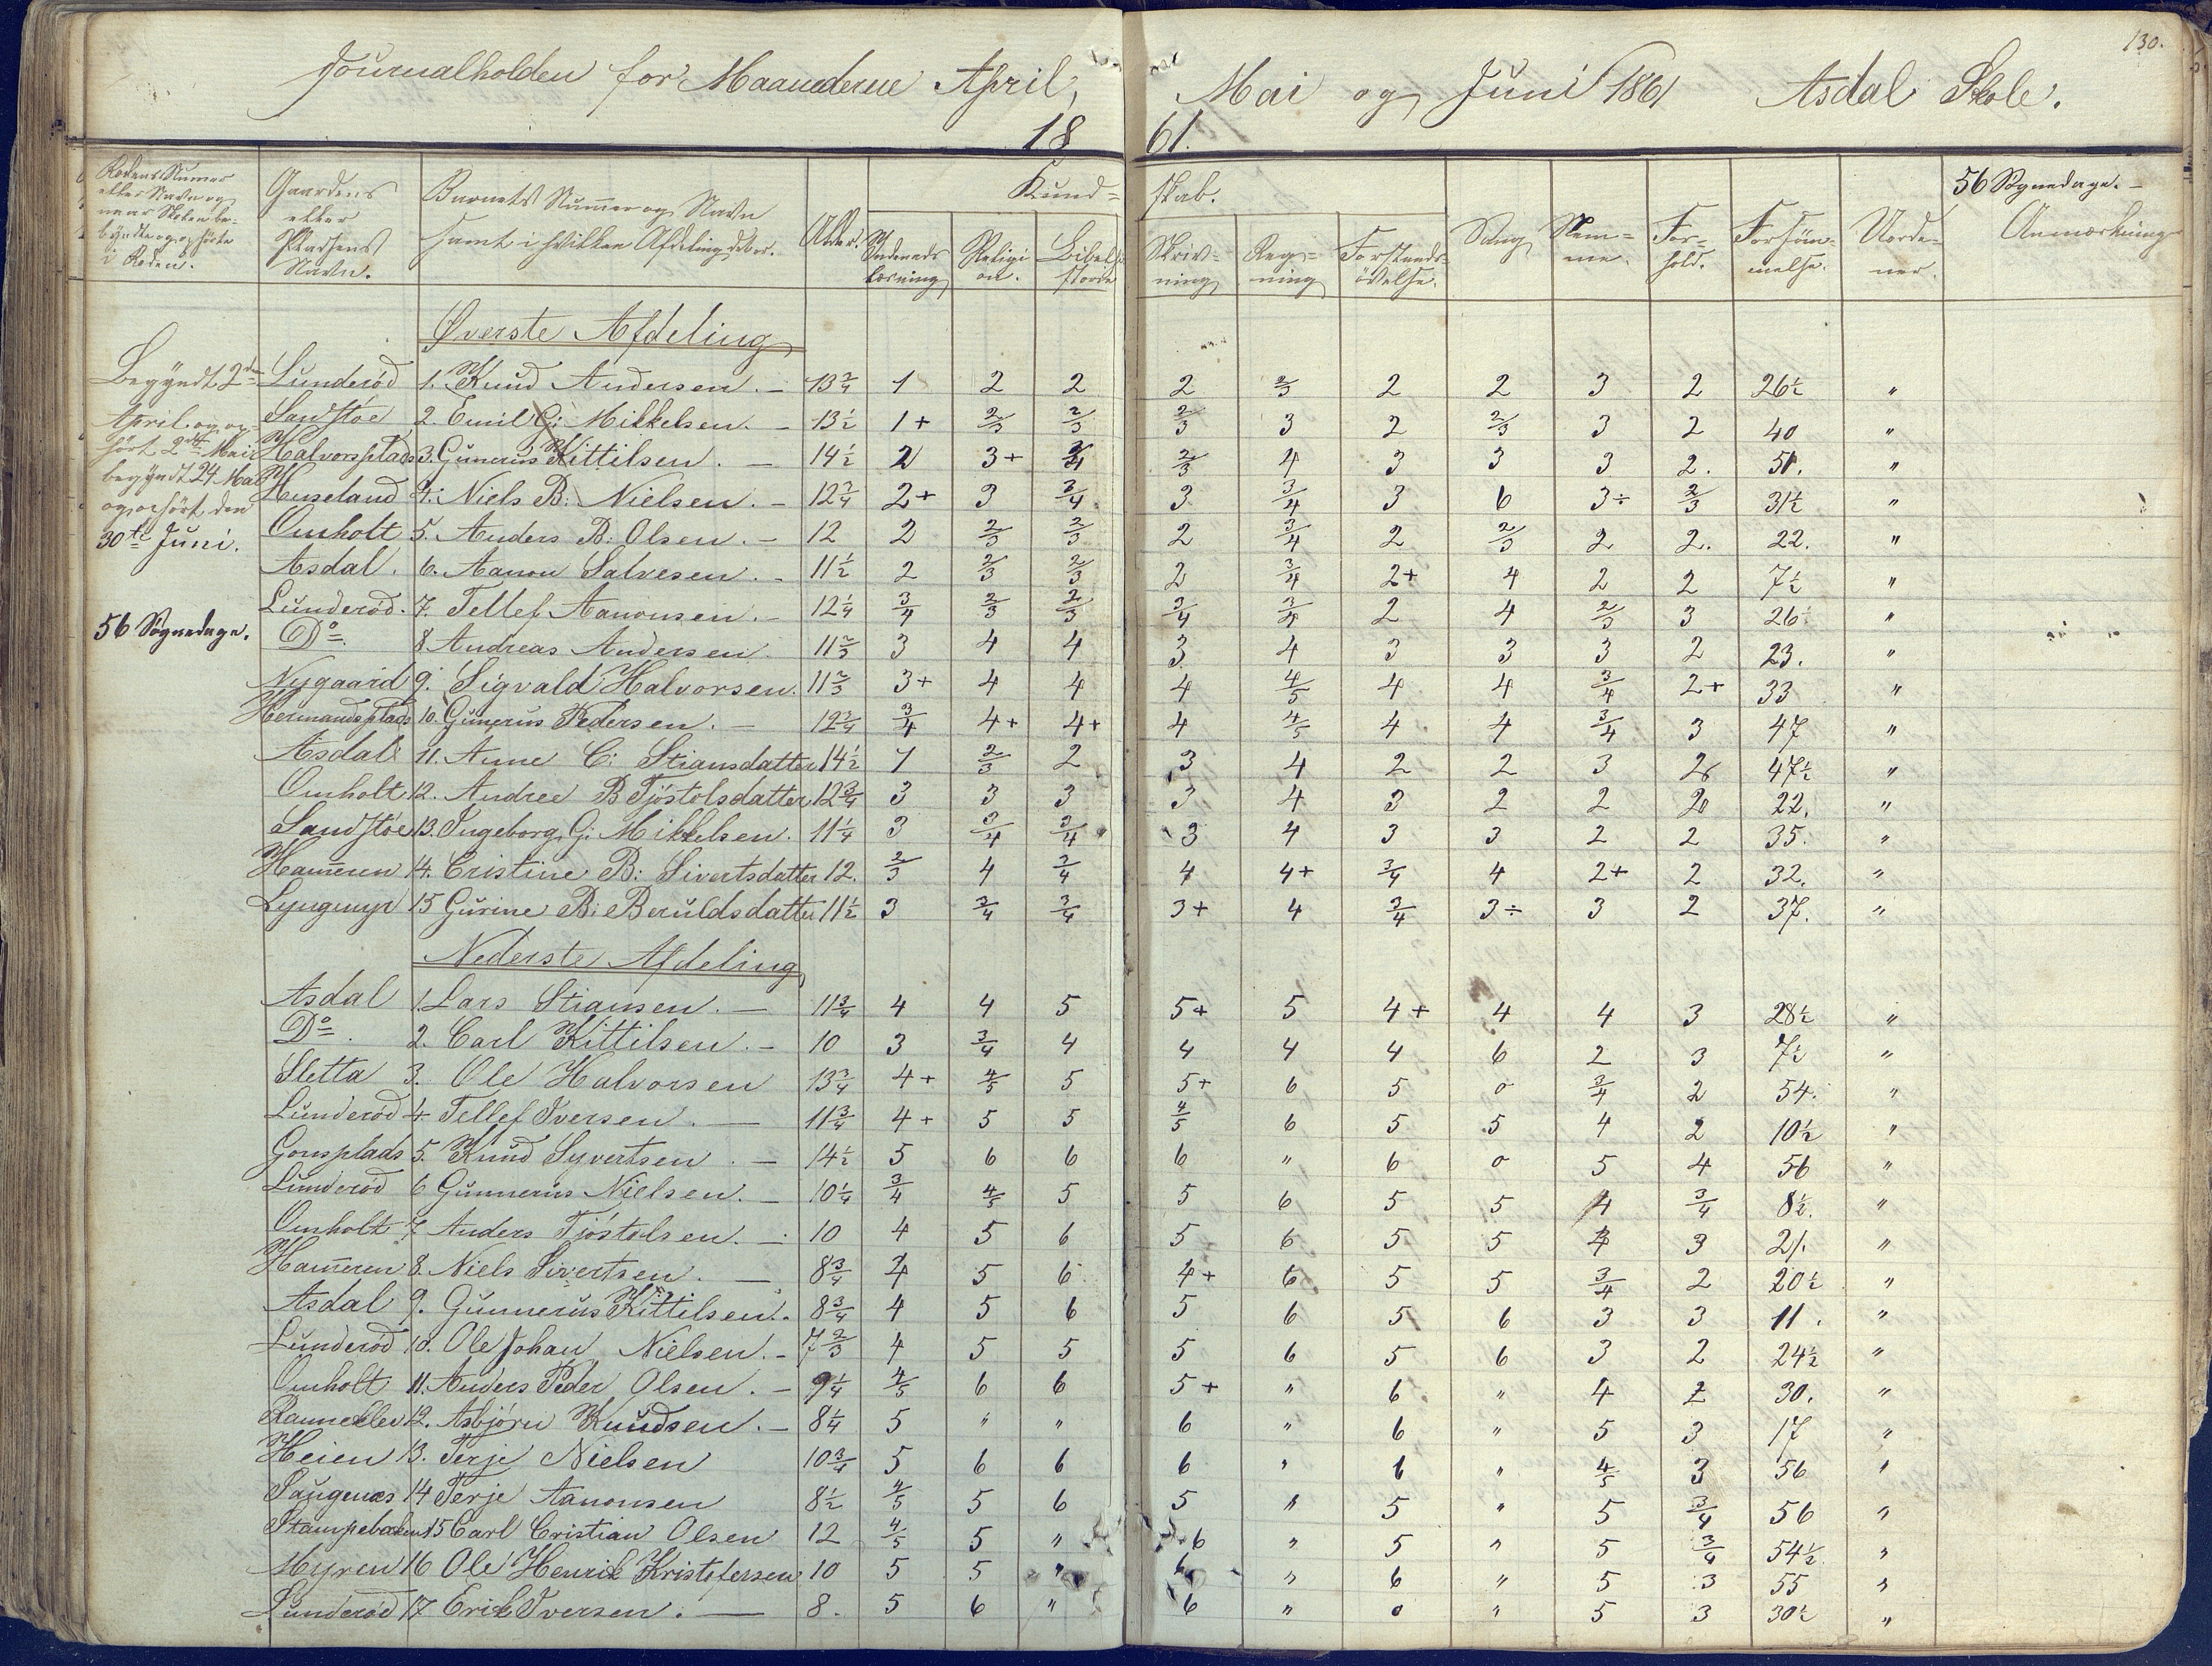 130.
Journalholden for Maanederne April, Mai og Juni 1861 Asdal Skole.
18 61.
Rodens Numer eller Navn og naar Skolen begyndte og ophörte i Roden.
Gaardens eller Pladsens Navn.
Barnets Numer og Navn samt i hvilken Afdeling det er.
Alder.
Kundskab.
Indenads læsning
Religion.
Bibelhistorie
Skrivning
Regning
Forstandsövelse.
Sang
Nemme.
Forhold.
Forsömmelse.
Uordener.
56 Sögnedage. –
Anmærkning
Begyndt 2den
April og ophört 2den Mai
begyndt 24 Mai
og ophört den
30te Juni.
56 Sögnedage.
Øverste Afdeling
Lunderöd 1. Knud Andersen. – 13 3/4 1 2 2 2 2/3 2 2 3 2 26½ "
Sandstöe 2. Emil G: Mikkelsen. – 13½ 1+ 2/3 2/3 2/3 3 2 2/3 3 2 40 "
Halvorsplads 3. Gunerius Kittilsen. – 14½ 2 3+ 3/4 2/3 4 3 3 3 2. 51. "
Huseland 4. Niels B: Nielsen. – 12 3/4 2+ 3 3/4 3 3/4 3 6 3÷ 2/3 31½ "
Omholt 5. Anders B: Olsen. – 12 2 2/3 2/3 2 3/4 2 2/3 2 2. 22. "
Asdal. 6. Aanon Salvesen. – 11½ 2 2/3 2/3 2 3/4 2+ 4 2 2 7½ "
Lunderöd. 7. Tellef Aanonsen. – 12¼ 3/4 2/3 2/3 3/4 3/4 2 4 2/3 3 26 "
Do 8 Andreas Andersen 11 2/3 3 4 4 3 4 3 3 3 2 23. "
Nygaard 9. Sigvald Halvorsen. 11 2/3 3+ 4 4 4 4/5 4 4 3/4 2+ 33 "
Hermandsplads 10. Gunerius Pedersen. – 12 3/4 3/4 4+ 4+ 4 4/5 4 4 3/4 3 47 "
Asdal 11. Anne C: Stiansdatter 14½ 1 2/3 2 3 4 2 2 3 2 47½ "
Omholt 12. Andree B Tjöstolsdatter 12 3/4 3 3 3 3 4 3 2 2 2 22. "
Sandstöe 13. Ingeborg G: Mikkelsen. 11¼ 3 3/4 3/4 3 4 3 3 2 2 35. "
Hammeren 14. Cristine B: Sivertsdatter 12. 2/3 4 3/4 4 4+ 3/4 4 2+ 2 32. "
Lyngmyr 15 Gurine B: Beruldsdatter 11½ 3 3/4 3/4 3+ 4 3/4 3÷ 3 2 37. "
Nederste Afdeling
Asdal 1. Lars Stiansen. – 11 3/4 4 4 5 5+ 5 4+ 4 4 3 28½ "
Do. 2. Carl Kittilsen. – 10 3 3/4 4 4 4 4 6 2 3 7½ "
Sletta 3. Ole Halvorsen 13 3/4 4+ 4/5 5 5+ 6 5 0 3/4 2 54. "
Lunderöd 4. Tellef Iversen. – 11 3/4 4+ 5 5 4/5 6 5 5 4 2 10½ "
Gonsplads 5. Knud Syvertsen. – 14½ 5 6 6 6 " 6 0 5 4 56 "
Lunderöd 6 Gunnerius Nielsen. – 10¼ 3/4 4/5 5 5 6 5 5 4 3/4 8½. "
Omholt 7 Anders Tjöstolsen. – 10 4 5 6 5 6 5 5 3 21. "
Hammeren 8. Niels Sivertsen. – 8 3/4 5 6 4+ 6 5 5 3/4 2 20½ "
Asdal 9. Gunnerius Kittilsen. 8 3/4 4 5 6 5 6 5 6 3 3 11. "
Lunderöd 10. Ole Johan Nielsen. – 7 2/3 4 5 5 5 6 5 6 3 2 24½ "
Omholt 11. Anders Peder Olsen. – 9¼ 4/5 6 6 5+ " 6 " 4 2 30. "
Ranneklev 12. Asbjörn Knudsen. – 8¼ 5 " " 6 " 6 " 5 3 17 "
Heien 13. Terje Nielsen 10 3/4 5 6 6 6 " 6 " 4/5 3 56 "
Saugenæs 14 Terje Aanonsen 8½ 4/5 5 6 5 " 5 " 5 3/4 56 "
Stampebækken 15 Carl Cristian Olsen 12 4/5 5 " 6 " 5 " 5 3/4 54½ "
Myren 16 Ole Henrik Kristofersen 10 5 5 " 6 " 6 " 5 3 55 "
Lunderöd 17 Erik Iversen. – 8. 5 6 " 6 " 0 " 5 3 30½ "